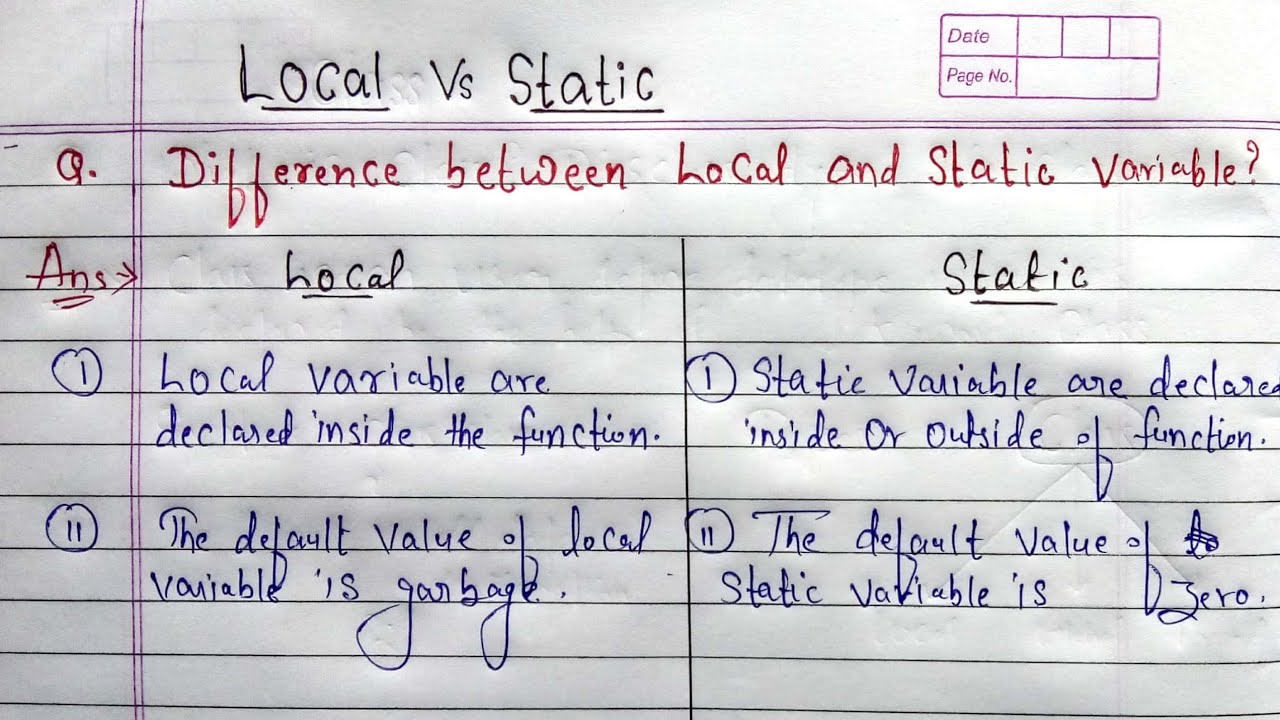 Local Vs Static
Date
Page No.
Q. Difference between Local and Static variable?
Ans:→ Local Static
(I) Local variable are (I) Static variable are declared
declared inside the function. inside or outside of function.
(II) The default value of local (II) The default value of
variable is garbage. Static variable is zero.